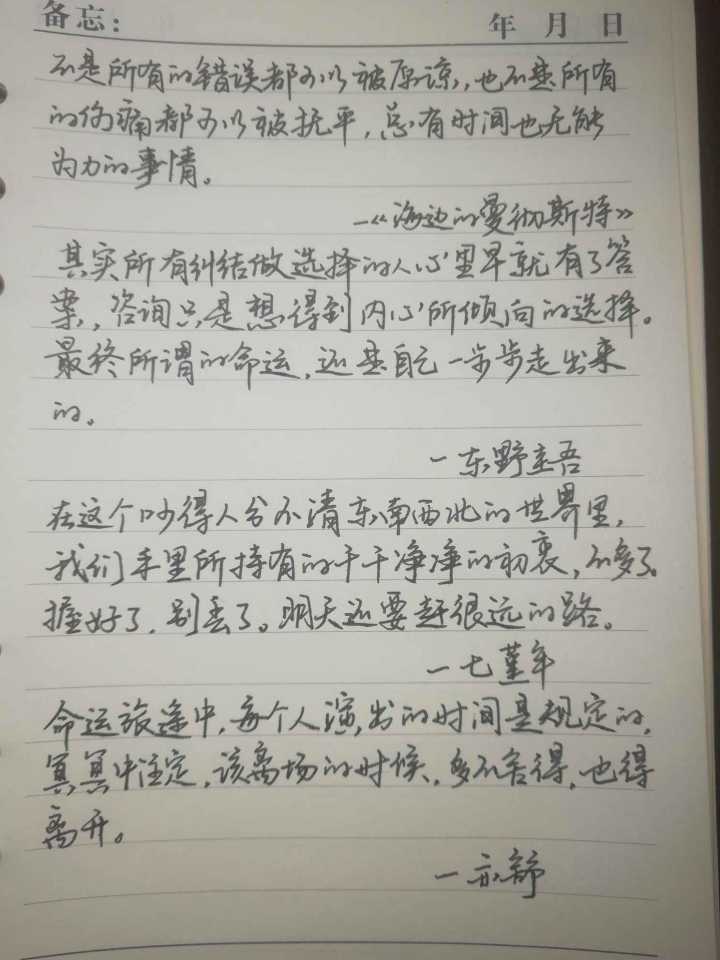 备忘：
年 月 日
不是所有的错误都可以被原谅，也不是所有
的伤痛都可以被抚平，总有时间也无能
为力的事情。
—《海边的曼彻斯特》
其实所有纠结做选择的人心里早就有了答
案，咨询只是想得到内心所倾向的选择。
最终所谓的命运，还是自己一步步走出来
的。
—东野圭吾
在这个吵得人分不清东南西北的世界里，
我们手里所持有的干干净净的初衷，不多了。
握好了，别丢了。明天还要赶很远的路。
—七堇年
命运旅途中，每个人演出的时间是规定的，
冥冥中注定，该离场的时候，多不舍得，也得
离开。
—亦舒